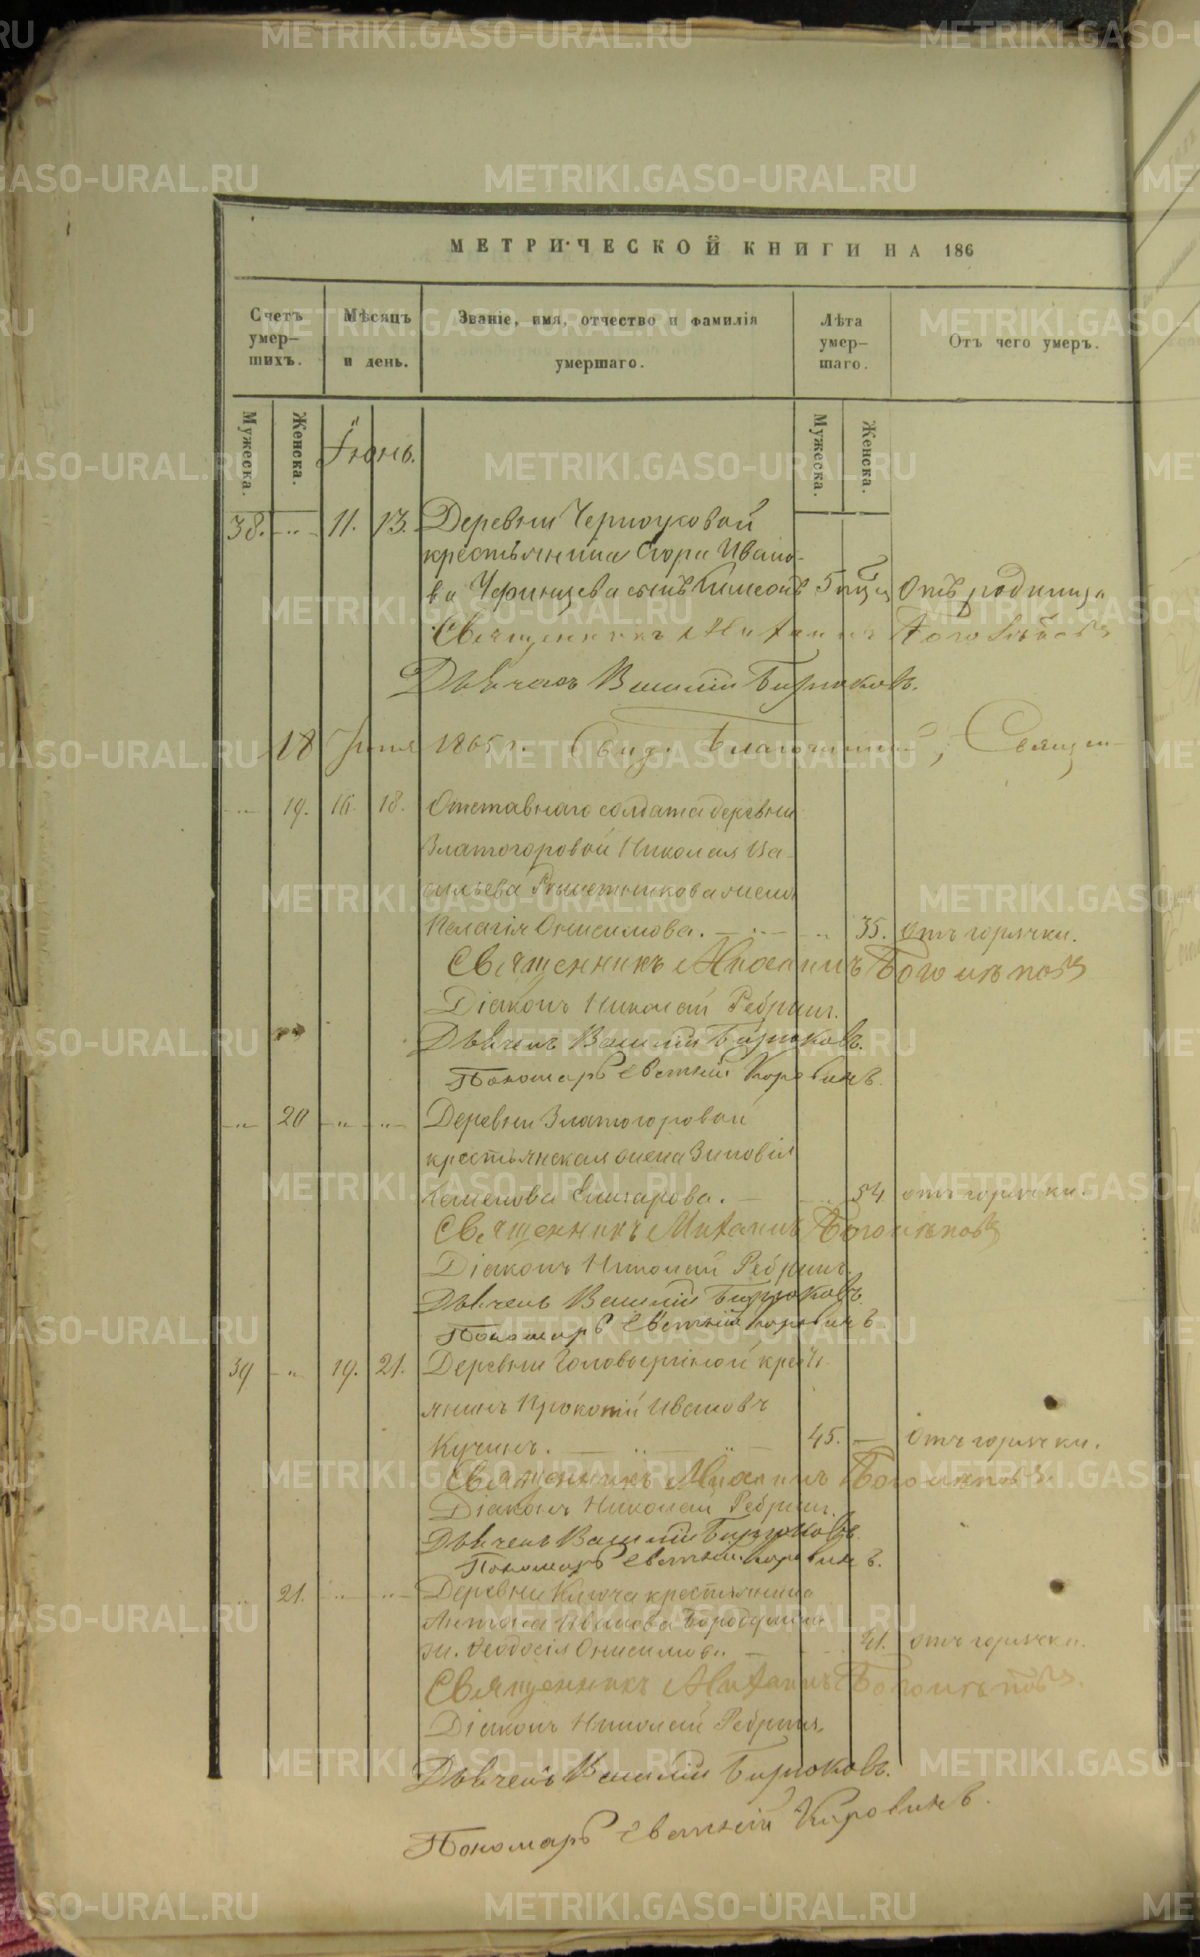 МЕТРИЧЕСКОЙ КНИГИ НА 186
Счетъ умер-шихъ.
Мѣсяцъ и день.
Званіе, имя, отчество и фамилія умершаго.
Лѣта умер-шаго.
Отъ чего умеръ.
Мужеска.
Женска.
Іюнь.
Мужеска.
Женска.
38. 11. 13. Деревни
крестьянина Ивано-
ва сынъ Симеонъ 5 Отъ родимца
Священникъ Михаилъ
Дьячекъ Василій Бирюковъ.
18 Іюня 1865 г. Благочинный, Священ-
19. 16. 18. Отставнаго солдата деревни
Златогоровой Николая Ва-
сильева Решетникова жена
Пелагія Онисимова. 35. отъ горячки.
Священникъ Михаилъ
Діаконъ Николай Ребринъ.
Дьячекъ Василій Бирюковъ.
Пономарь Евгеній Коровинъ.
20 Деревни Златогоровой
крестьянская жена Зиновія
54 отъ горячки.
Священникъ Михаилъ
Діаконъ Николай Ребринъ.
Дьячекъ Василій Бирюковъ.
Пономарь Евгеній Коровинъ
39 19. 21. Деревни крест-
янинъ Прокопій Ивановъ
Кучинъ. 45. отъ горячки.
Священникъ Михаилъ
Діаконъ Николай Ребринъ.
Дьячекъ Василій Бирюковъ.
Пономарь Евгеній Коровинъ.
21. Деревни Ключа крестьянина
Антона Иванова
ж. Феодосія Онисимова 41. отъ горячки.
Священникъ Михаилъ
Діаконъ Николай Ребринъ.
Дьячекъ Василій Бирюковъ.
Пономарь Евгеній Коровинъ.
METRIKI.GASO-URAL.RU